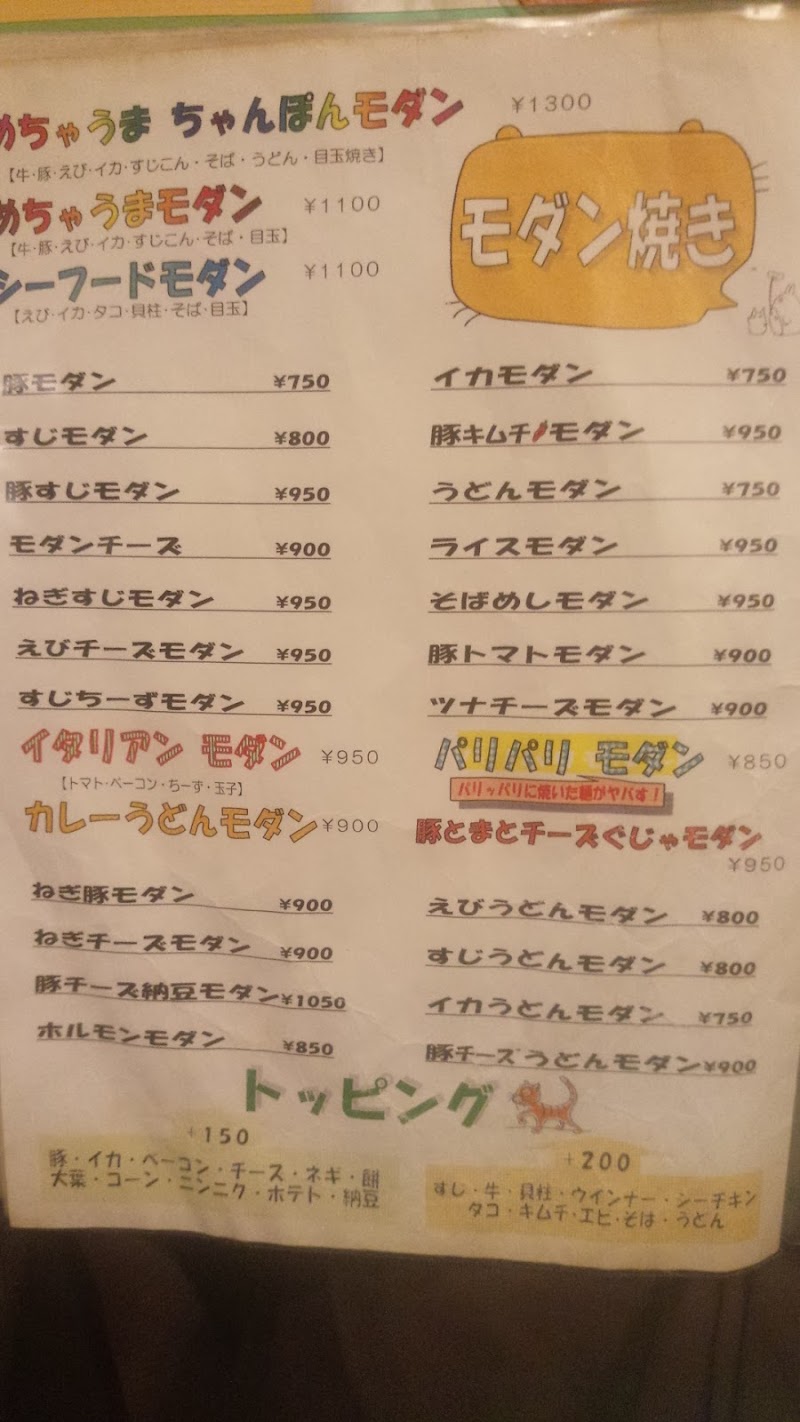 めちゃうま ちゃんぽんモダン ¥1300
【牛・豚・えび・イカ・すじこん・そば・うどん・目玉焼き】
めちゃうまモダン ¥1100
【牛・豚・えび・イカ・すじこん・そば・目玉】
シーフードモダン ¥1100
【えび・イカ・タコ・貝柱・そば・目玉】
モダン焼き
豚モダン ¥750
すじモダン ¥800
豚すじモダン ¥950
モダンチーズ ¥900
ねぎすじモダン ¥950
えびチーズモダン ¥950
すじちーずモダン ¥950
イタリアン モダン ¥950
【トマト・ベーコン・ちーず・玉子】
カレーうどんモダン ¥900
ねぎ豚モダン ¥900
ねぎチーズモダン ¥900
豚チーズ納豆モダン ¥1050
ホルモンモダン ¥850
イカモダン ¥750
豚キムチモダン ¥950
うどんモダン ¥750
ライスモダン ¥950
そばめしモダン ¥950
豚トマトモダン ¥900
ツナチーズモダン ¥900
パリパリ モダン ¥850
パリッパリに焼いた麺がヤバす!
豚とまとチーズぐじゃモダン
¥950
えびうどんモダン ¥800
すじうどんモダン ¥800
イカうどんモダン ¥750
豚チーズうどんモダン ¥900
トッピング
+150
豚・イカ・ベーコン・チーズ・ネギ・餅
大葉・コーン・ニンニク・ポテト・納豆
+200
すじ・牛・貝柱・ウインナー・シーチキン
タコ・キムチ・エビ・そば・うどん